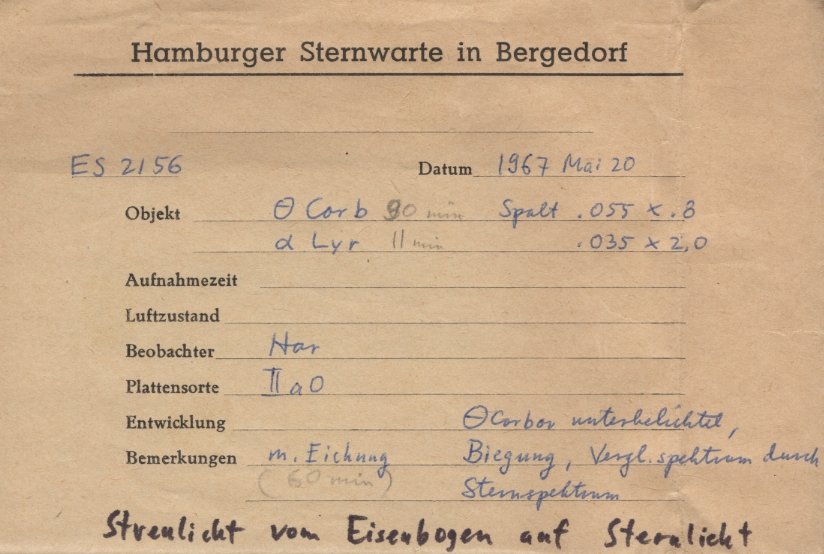 Hamburger Sternwarte in Bergedorf
ES 2156 Datum 1967 Mai 20
Objekt Θ Corb 90 min Spalt .055 x .8
α Lyr 11 min .035 x 2,0
Aufnahmezeit
Luftzustand
Beobachter Har
Plattensorte II a O
Entwicklung Θ Corbor unterbelichtet,
Bemerkungen m. Eichung Biegung, Vergl.spektrum durch
(60 min) Sternspektrum
Streulicht vom Eisenbogen auf Sternlicht